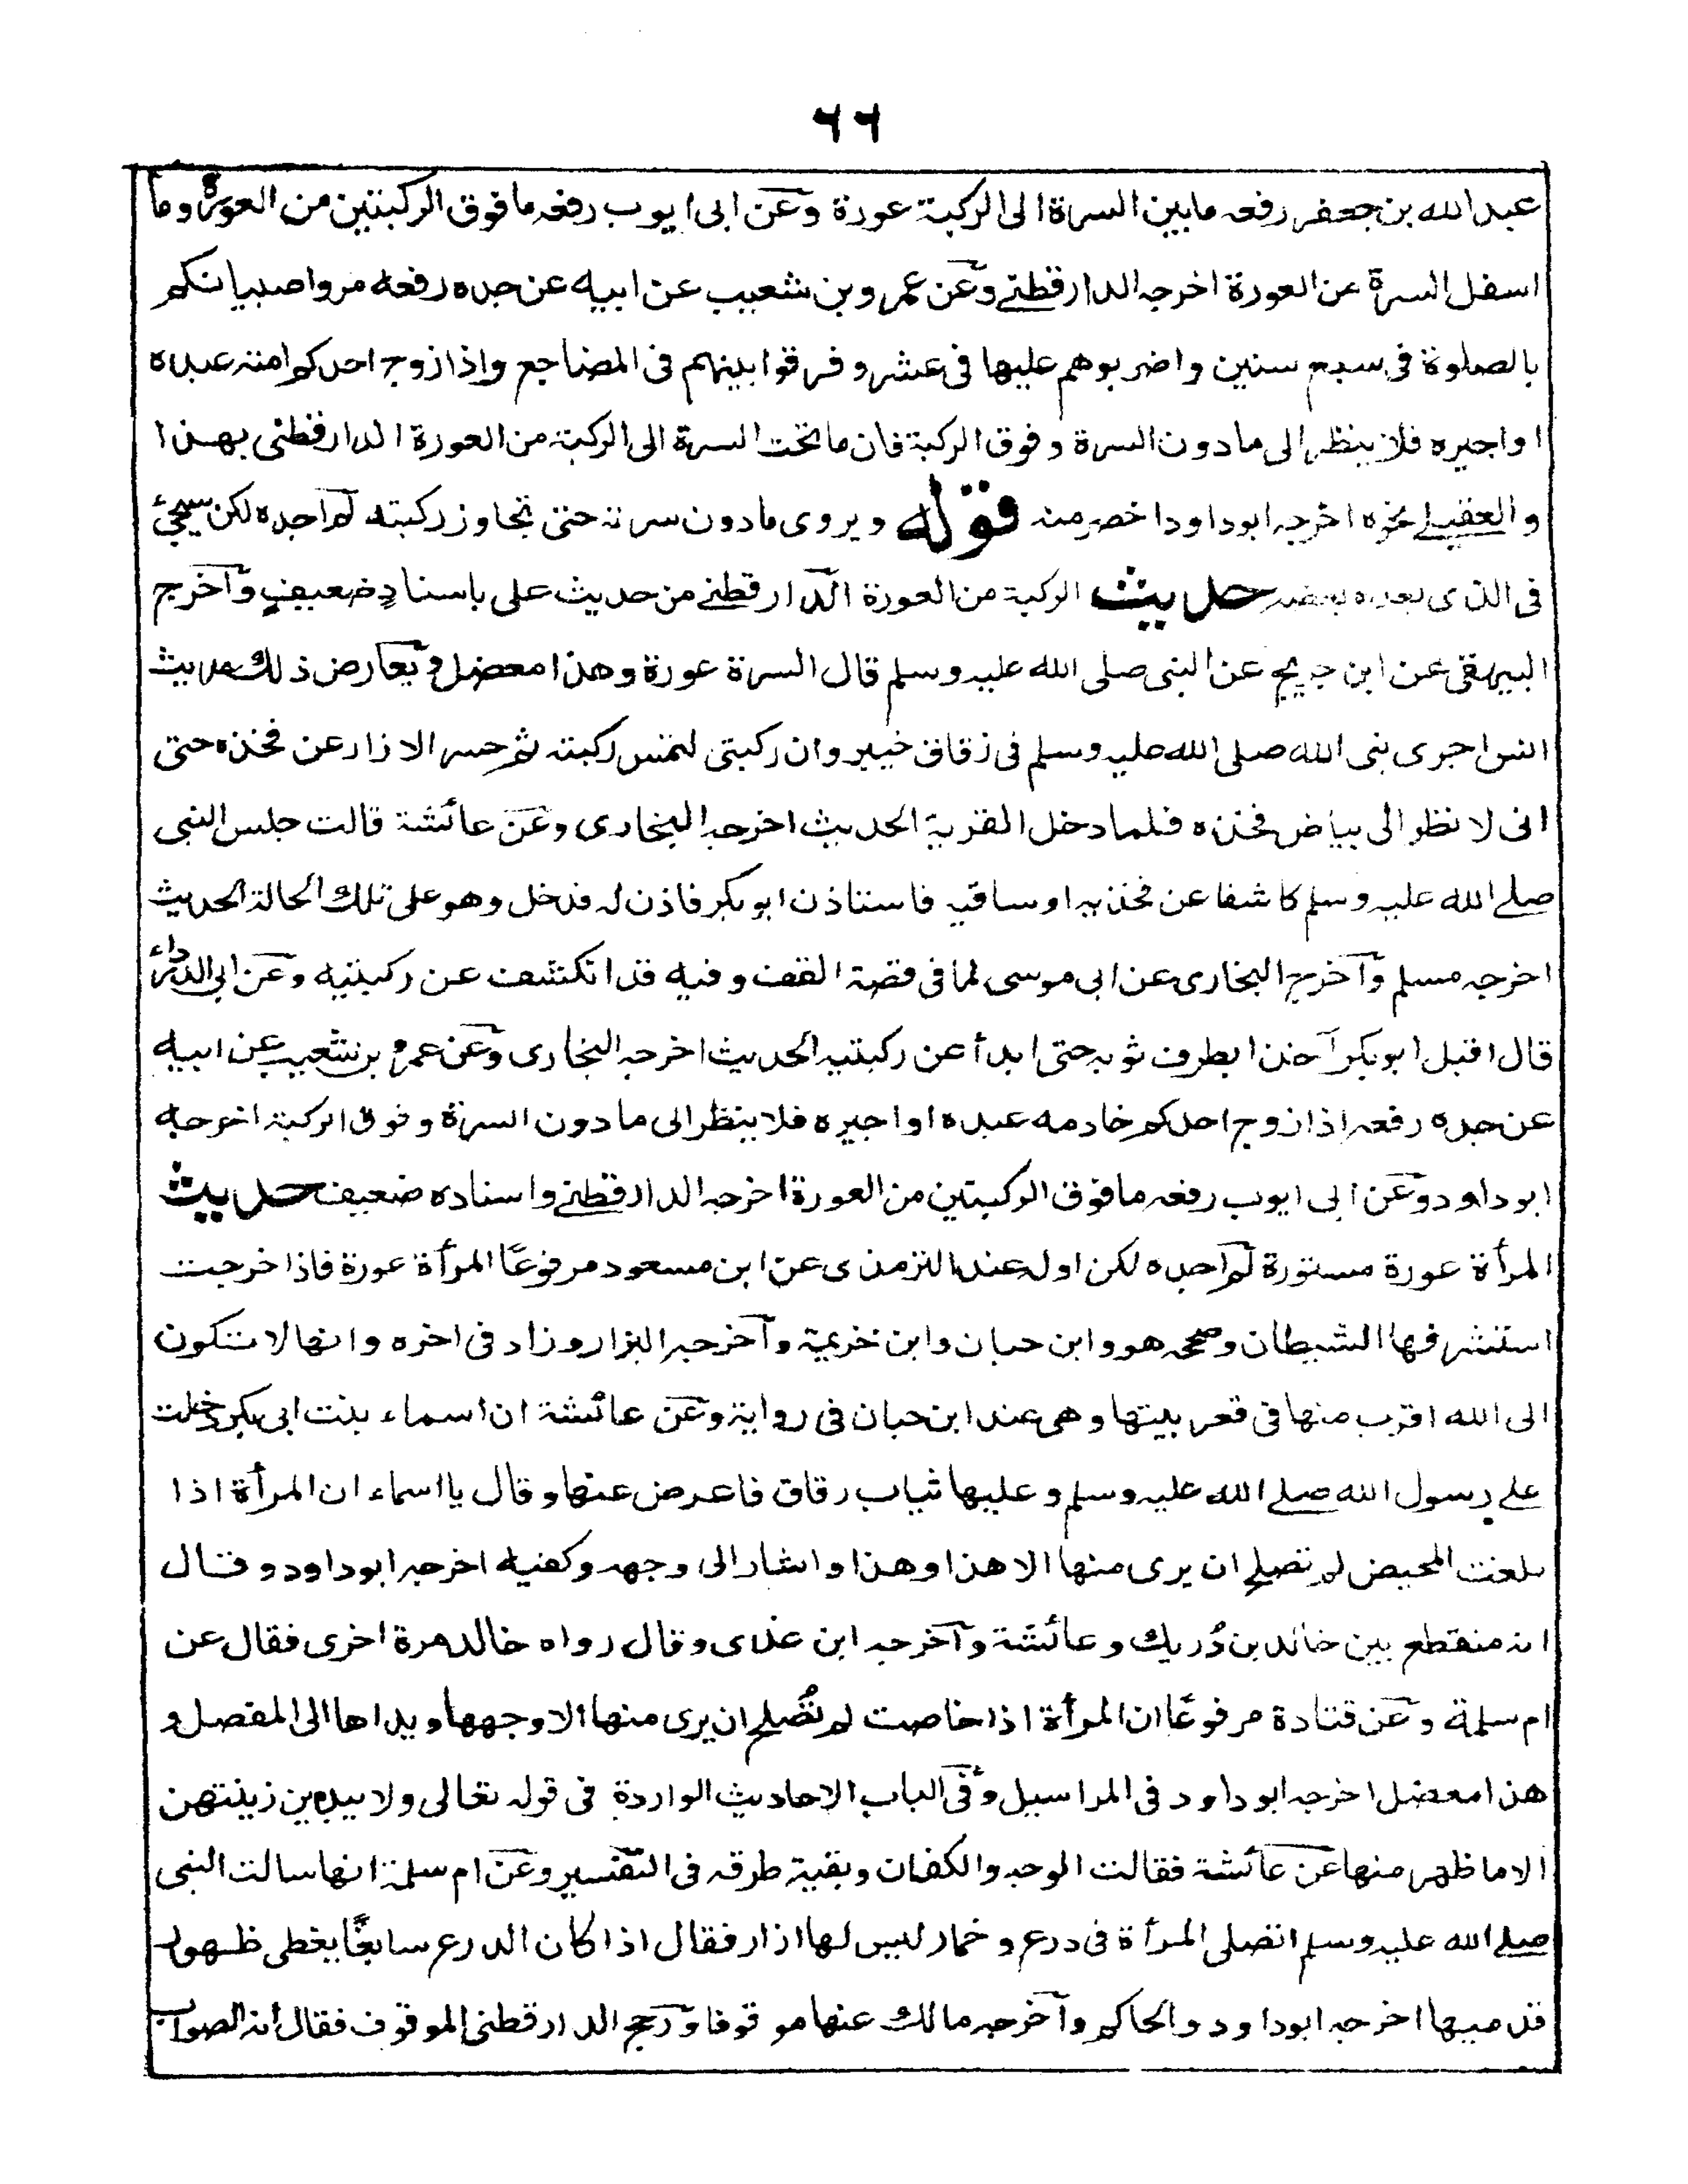 ٦٦
عبد الله بن جعفر رفعه ما بين السرة الى الركبة عورة وعن ابى ايوب رفعه ما فوق الركبتين من العورة وما
اسفل السرة من العورة اخرجه الدارقطنے وعن عمرو بن شعيب عن ابيه عن جده رفعه مروا صبيانكم
بالصلوة فى سبع سنين واضربوهم عليها فى عشر و فرقوا بينهم فى المضاجع واذا زوج احدكم امته عبده
او اجيره فلا ينظر الى ما دون السرة و فوق الركبة فان ما تحت السرة الى الركبة من العورة الدارقطنى بهذا
و العقيلے نحوه اخرجه ابوداود اخصر منه قوله و يروى ما دون سرته حتى تجاوز ركبته لم اجده لكن سيجئ
فى الذى بعده بعضه حديث الركبة من العورة الدارقطنے من حديث على باسنادٍ ضعيفٍ وآخرج
البيهقى عن ابن جريج عن النبى صلى الله عليه وسلم قال السرة عورة وهذا معضل و يعارض ذلك حديث
انس اجرى نبى الله صلى الله عليه وسلم فى زقاق خيبر وان ركبتى لتمس ركبته ثم حسر الازار عن فخذه حتى
انى لا نظر الى بياض فخذه فلما دخل القرية الحديث اخرجه البخارى وعن عائشة قالت جلس النبى
صلے الله عليه وسلم كاشفا عن فخذيه او ساقيه فاستاذن ابو بكر فاذن له فدخل وهو على تلك الحالة الحديث
اخرجه مسلم وآخرج البخارى عن ابى موسى لما فى قصة القف و فيه قد انكشف عن ركبتيه وعن ابى الدرداء
قال اقبل ابو بكر آخذا بطرف ثوبه حتى ابدأ عن ركبتيه الحديث اخرجه البخارى وعن عمرو بن شعيب عن ابيه
عن جده رفعه اذا زوج احدكم خادمه عبده او اجيره فلا ينظر الى ما دون السرة و فوق الركبة اخرجه
ابو داود وعن ابى ايوب رفعه ما فوق الركبتين من العورة اخرجه الدارقطنے و اسناده ضعيف حديث
المرأة عورة مستورة لم اجده لكن اوله عند الترمذى عن ابن مسعود مرفوعًا المرأة عورة فاذا خرجت
استشرفها الشيطان و صححه هو و ابن حبان وابن خزيمة وآخرجه البزار و زاد فى اخره وانها لا تكون
الى الله اقرب منها فى قعر بيتها وهى عند ابن حبان فى رواية وعن عائشة ان اسماء بنت ابى بكر دخلت
علے رسول الله صلے الله عليه وسلم و عليها ثياب رقاق فاعرض عنها و قال يا اسماء ان المرأة اذا
بلغت المحيض لم تصلح ان يرى منها الا هذا وهذا واشار الى وجهه وكفيه اخرجه ابو داود و قال
انه منقطع بين خالد بن دُريك و عائشة وآخرجه ابن عدى وقال رواه خالد مرة اخرى فقال عن
ام سلمة و عن قتادة مرفوعًا ان المرأة اذا حاصت لم تصلح ان يرى منها الا وجهها ويداها الى المفصل و
هذا معضل اخرجه ابو داود فى المراسيل و فى الباب الاحاديث الواردة فى قوله تعالى ولا يبدين زينتهن
الا ما ظهر منها عن عائشة فقالت الوجه والكفان و بقية طرقه فى التفسير وعن ام سلمة انها سالت النبى
صلے الله عليه وسلم اتصلى المرأة فى درع و خمار ليس لها ازار فقال اذا كان الدرع سابغًا يغطى ظهور
قدميها اخرجه ابوداود والحاكم وآخرجه مالك عنها موقوفا و رجح الدارقطنى الموقوف فقال انه الصواب